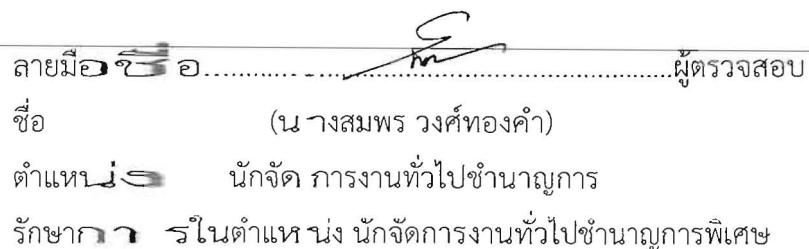 ลายมือชื่อ....................................................ผู้ตรวจสอบ
ชื่อ (นางสมพร วงศ์ทองคำ)
ตำแหน่ง นักจัดการงานทั่วไปชำนาญการ
รักษาการในตำแหน่ง นักจัดการงานทั่วไปชำนาญการพิเศษ